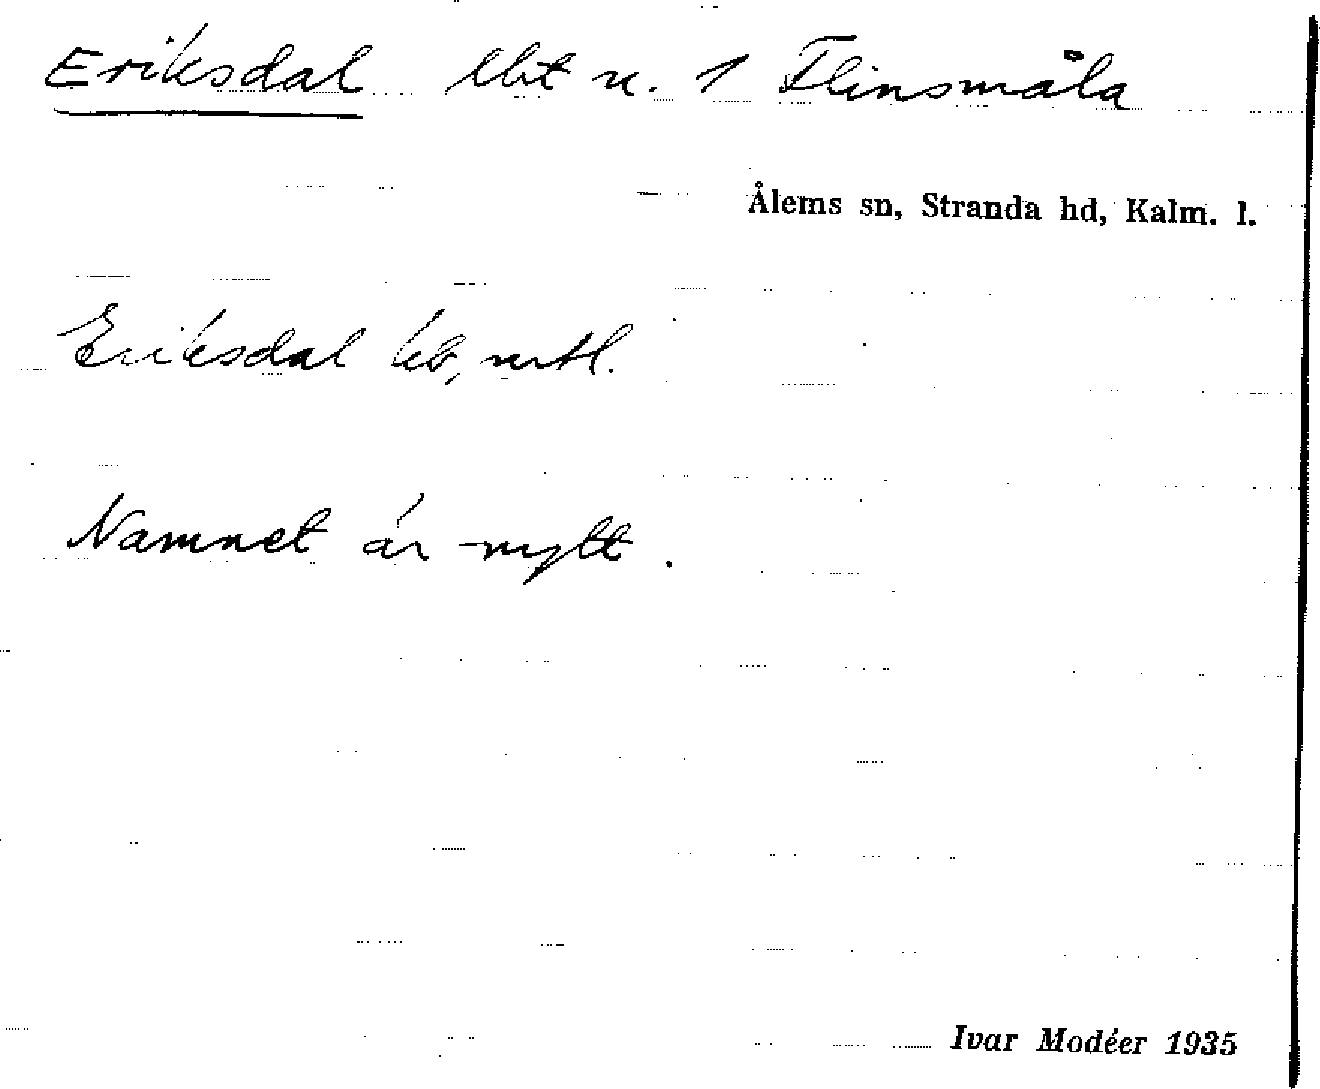 Eriksdal lht u. 1 Flinsmåla
Ålems sn, Stranda hd, Kalm. l.
Eriksdal kb, mtl.
Namnet är nytt.
Ivar Modéer 1935